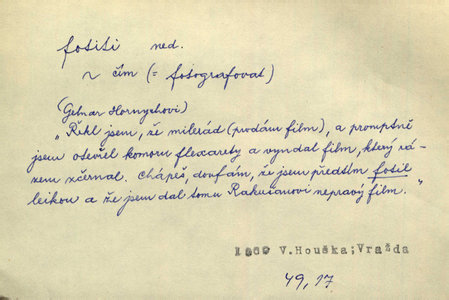 fotiti ned.
~ čím (= fotografovat)
(Gelnar Hornychovi)
"Řekl jsem, že milerád (prodám film), a promptně
jsem otevřel komoru flexarety a vyndal film, který rá-
zem zčernal. Chápeš, doufám, že jsem předtím fotil
leikou a že jsem dal tomu Rakušanovi nepravý film."
1969 V.Houška;Vražda
49,17